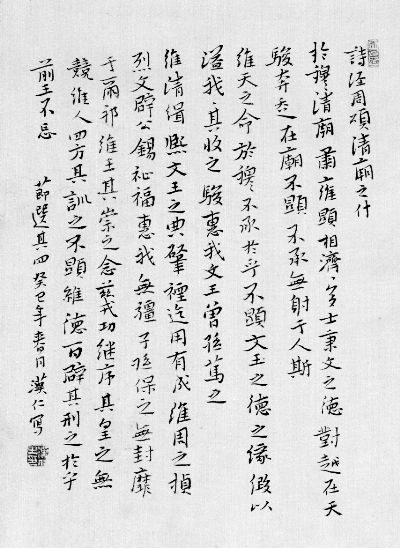 詩經周頌清廟之什
於穆清廟肅雍顯相濟〻多士秉文之德對越在天
駿奔走在廟不顯不承無射于人斯
維天之命於穆不承於乎不顯文王之德之假以
溢我其收之駿惠我文王曾孫篤之
維清緝熙文王之典肇禋迄用有成維周之禎
烈文辟公錫祉福惠我無疆子孫保之無封靡
于爾邦維王其崇之念茲戎功繼序其皇之無
競維人四方其訓之不顯維德百辟其刑之於乎
前王不忘 節選其四癸巳年春月漢仁寫